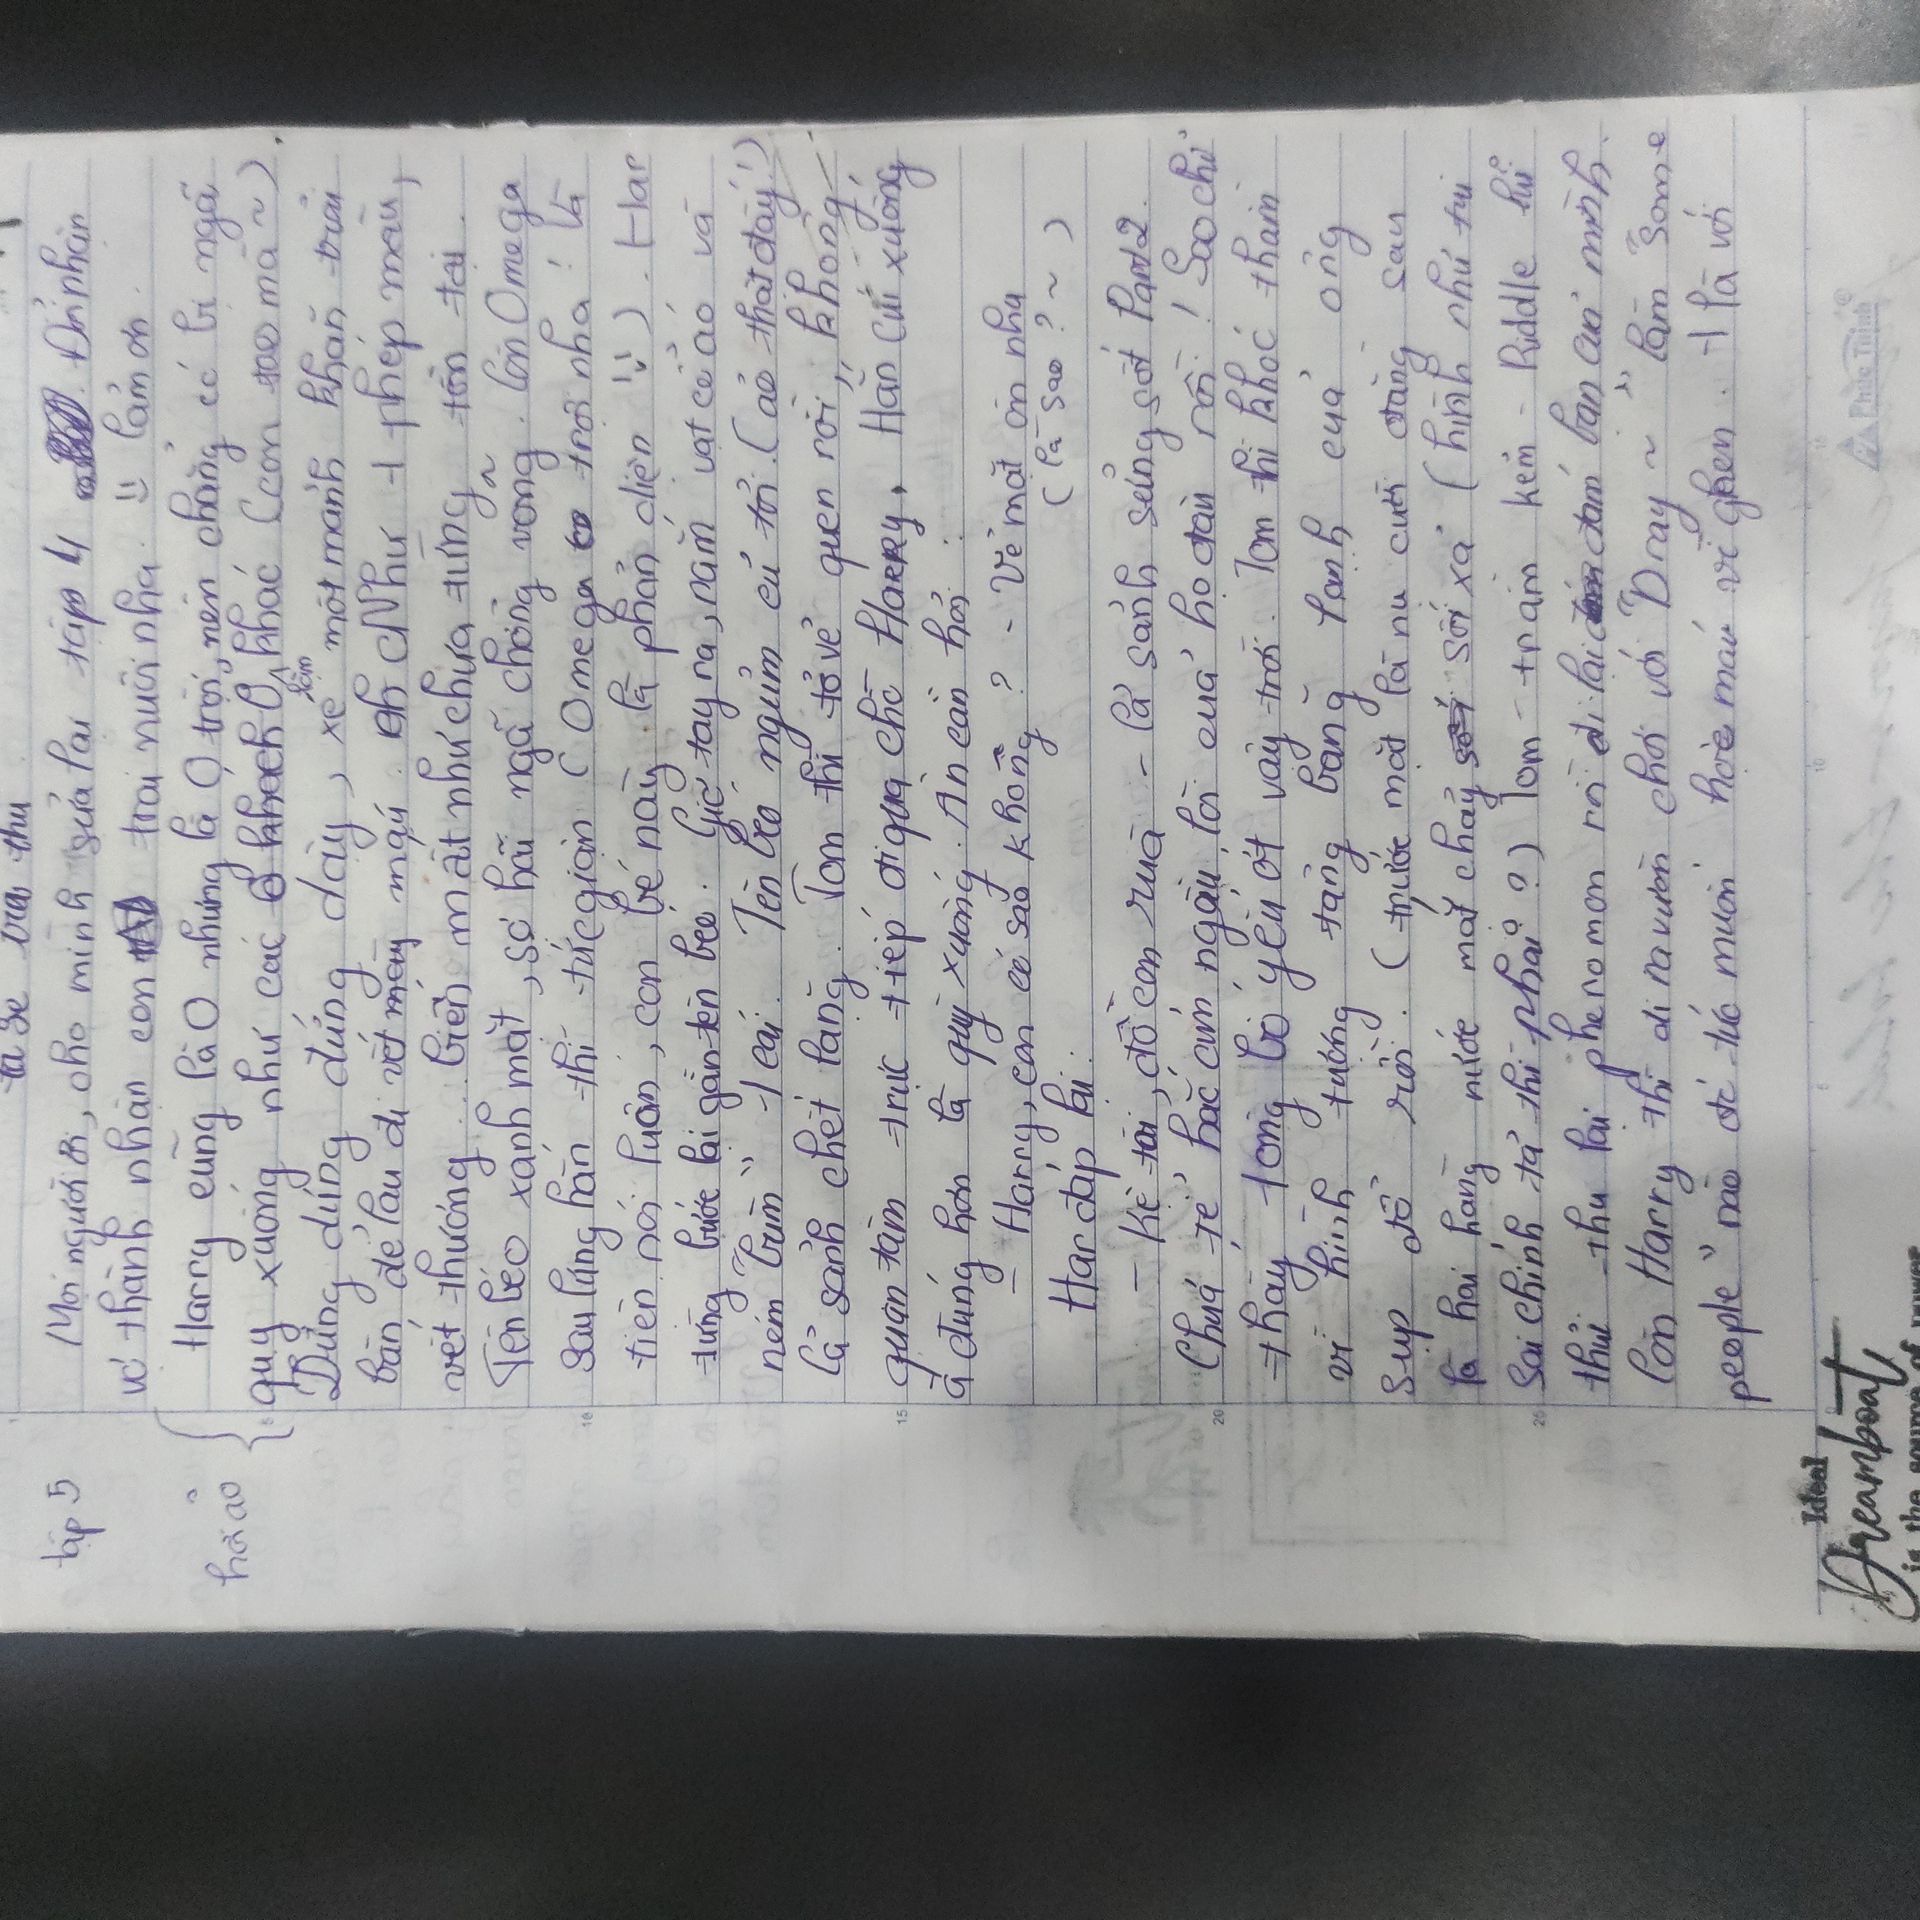 ta se vua thu
tập 5
Mọi người ơi, cho mình sửa lại tập 4 Đó nhận
vơ thành nhân con trai nuôi nha. =) cảm ơn.
Harry cũng là O nhưng là O trội, nên chẳng có bị ngã
hơi ảo
quỵ xuống như các O khác (con tao mà ~).
Dửng dưng đứng dậy, xé một mảnh khăn trải
bàn để lau đi vết máu. như 1 phép màu,
vết thương biến mất như chưa từng tồn tại.
Tên béo xanh mặt, sợ hãi ngã chỏng vọng. Còn Omega
sau lưng hắn thì tức giận (Omega trội nha! Và
tiện nói luôn, con bé này là phản diện =)). Har
từng bước lại gần tên béo. Giơ tay ra, nắm vạt cổ áo và
ném "Bùm" 1 cái. Tên béo ngủm củ tỏi. (ảo thật đấy!)
Cả sảnh chết lặng. Tom thì tỏ vẻ quen rồi, không
quan tâm trực tiếp đi qua chỗ Harry. Hắn cúi xuống
à đúng hơn là quỳ xuống. Ân cần hỏi:
- Harry, con có sao không? - Vẻ mặt ôn nhu
(là sao? ~)
Har đáp lại:
- Kệ tôi, đồ con rùa - Cả sảnh sửng sốt Part 2.
Chúa tể hắc ám ngầu lòi quá họ đâu rồi! Sao chỉ
thấy 1 ông bố yếu ớt vậy trời. Tom thì khóc thầm
vì hình tượng tảng băng lạnh của ông
sụp đổ rồi. (trước mặt là nụ cười đằng sau
là hai hàng nước mắt chảy sối xả (hình như tui
sai chính tả thì phải?)) Tom - trầm kẻm - Riddle thì
thui thu lại pheromon rồi đi lại đám bạn của mình.
Còn Harry thì đi ra vườn chơi với "Dray ~" lắm "some
people" nào đó tức muốn hộc máu vì ghen. 1 là với
Phúc Thịnh®
Ideal
Dreamboat
is the source of power